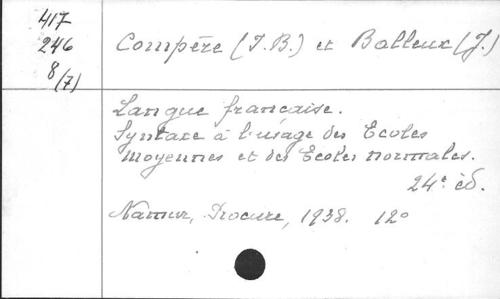 417
246
8(7)
Compère (J.B.) et Balleux (J.)
Langue française.
Syntaxe à l'usage des Ecoles
Moyennes et des Ecoles normales.
24e éd.
Namur, Procure, 1938. 12°